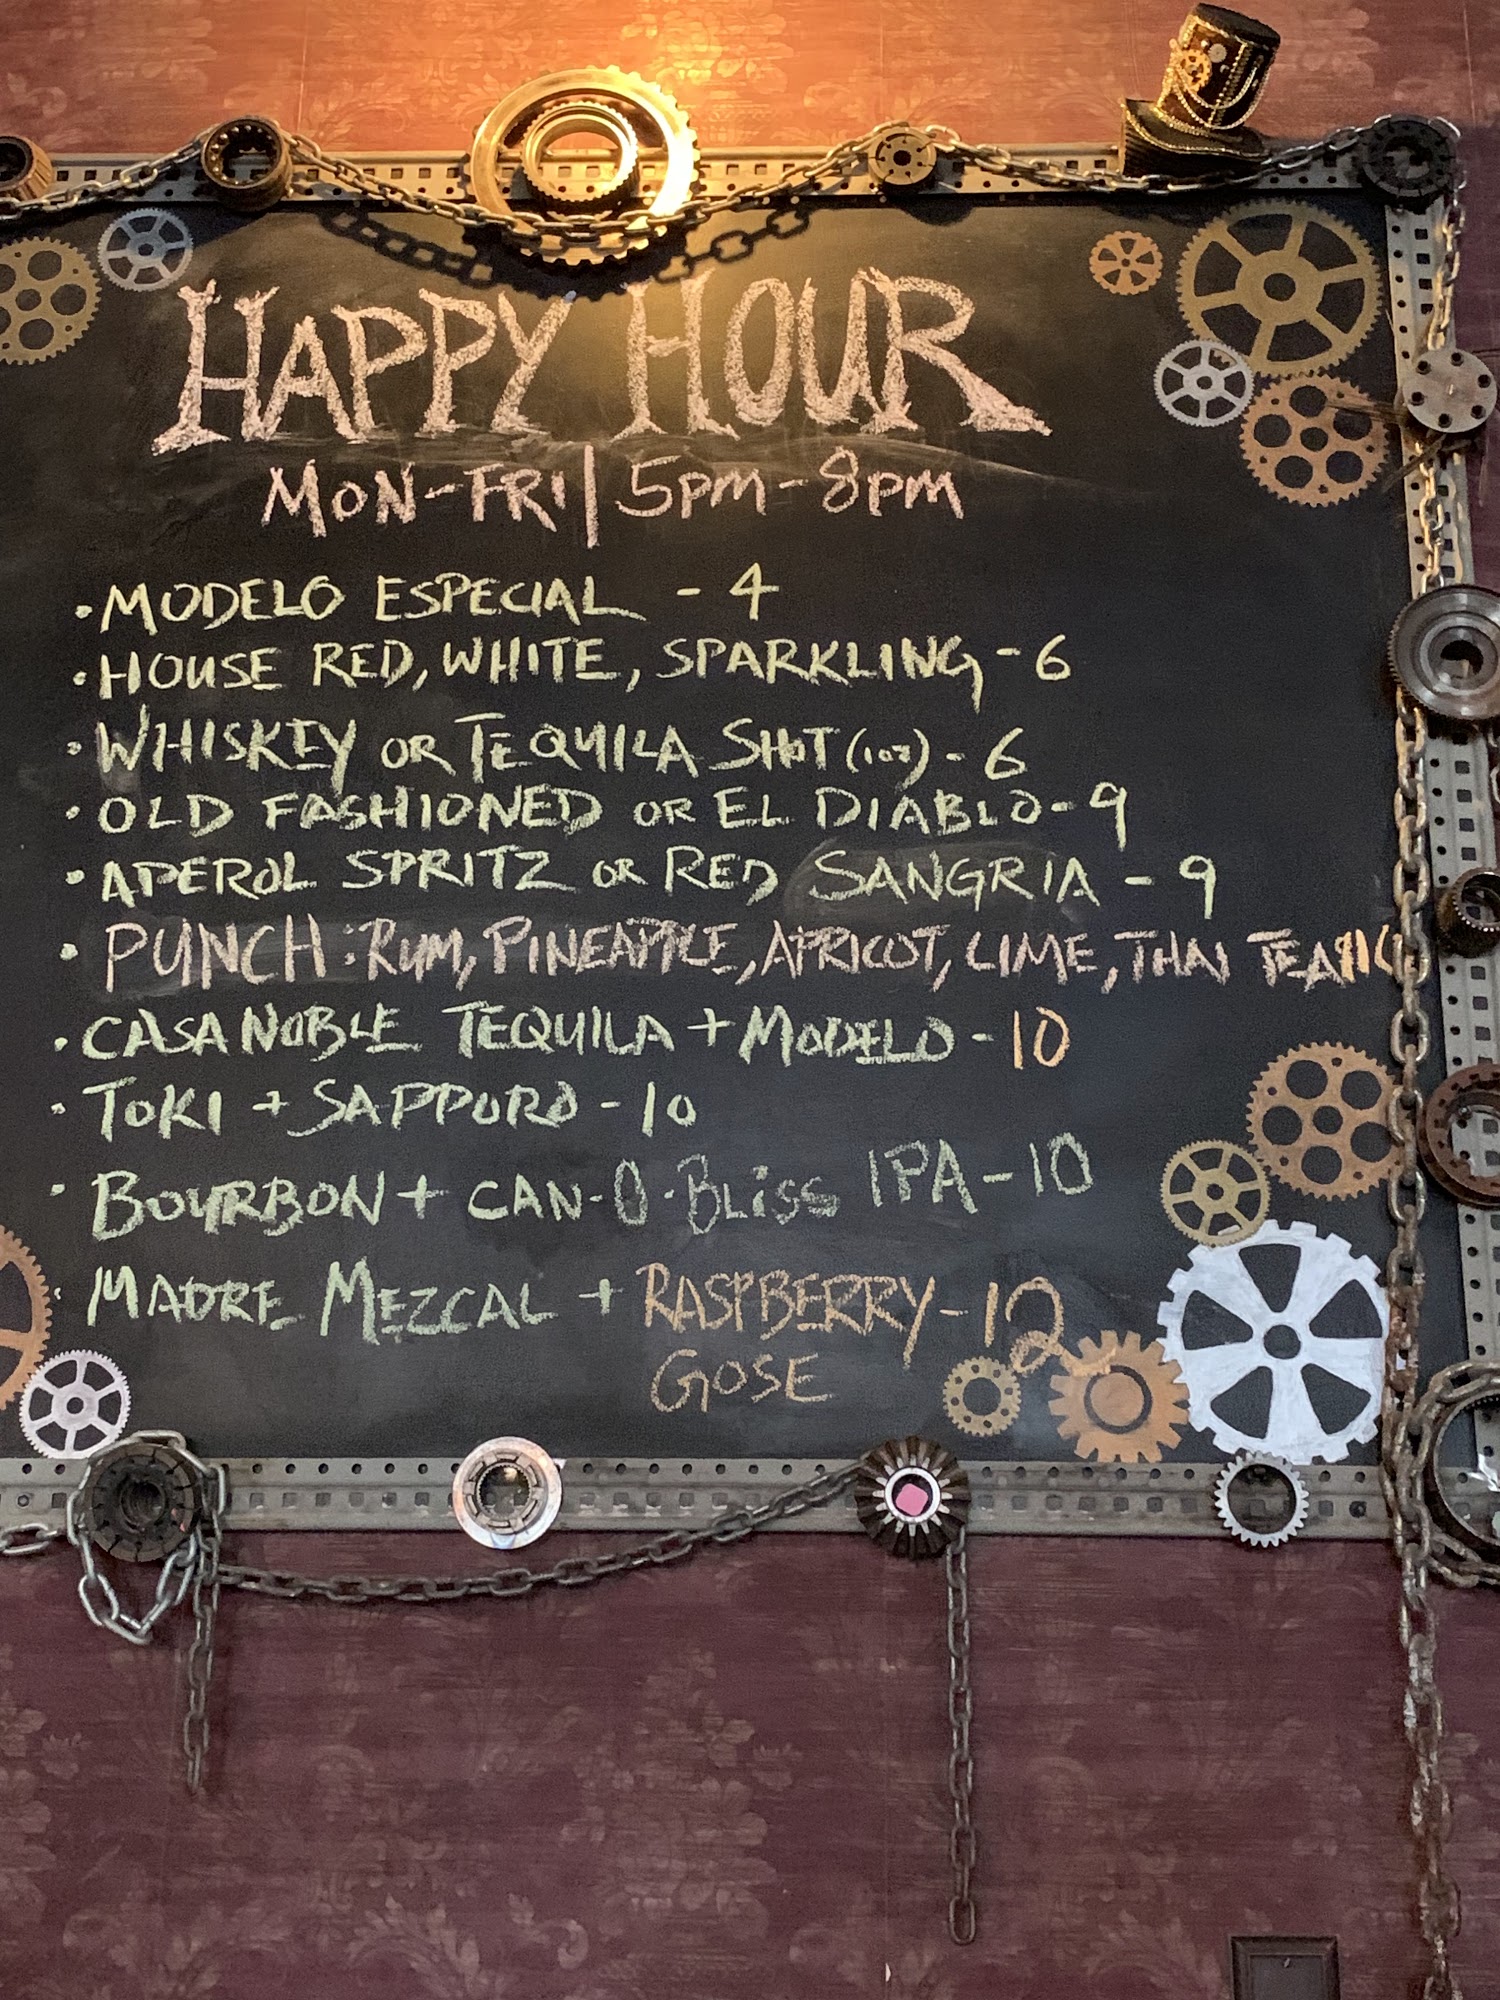 HAPPY HOUR
MON-FRI | 5PM-8PM
• MODELO ESPECIAL - 4
• HOUSE RED, WHITE, SPARKLING - 6
• WHISKEY OR TEQUILA SHOT (1oz) - 6
• OLD FASHIONED OR EL DIABLO - 9
• APEROL SPRITZ OR RED SANGRIA - 9
• PUNCH: RUM, PINEAPPLE, APRICOT, LIME, THAI TEA
• CASA NOBLE TEQUILA + MODELO - 10
• TOKI + SAPPORO - 10
• BOURBON + CAN-O-BLiSS IPA - 10
• MADRE MEZCAL + RASPBERRY - 12
GOSE